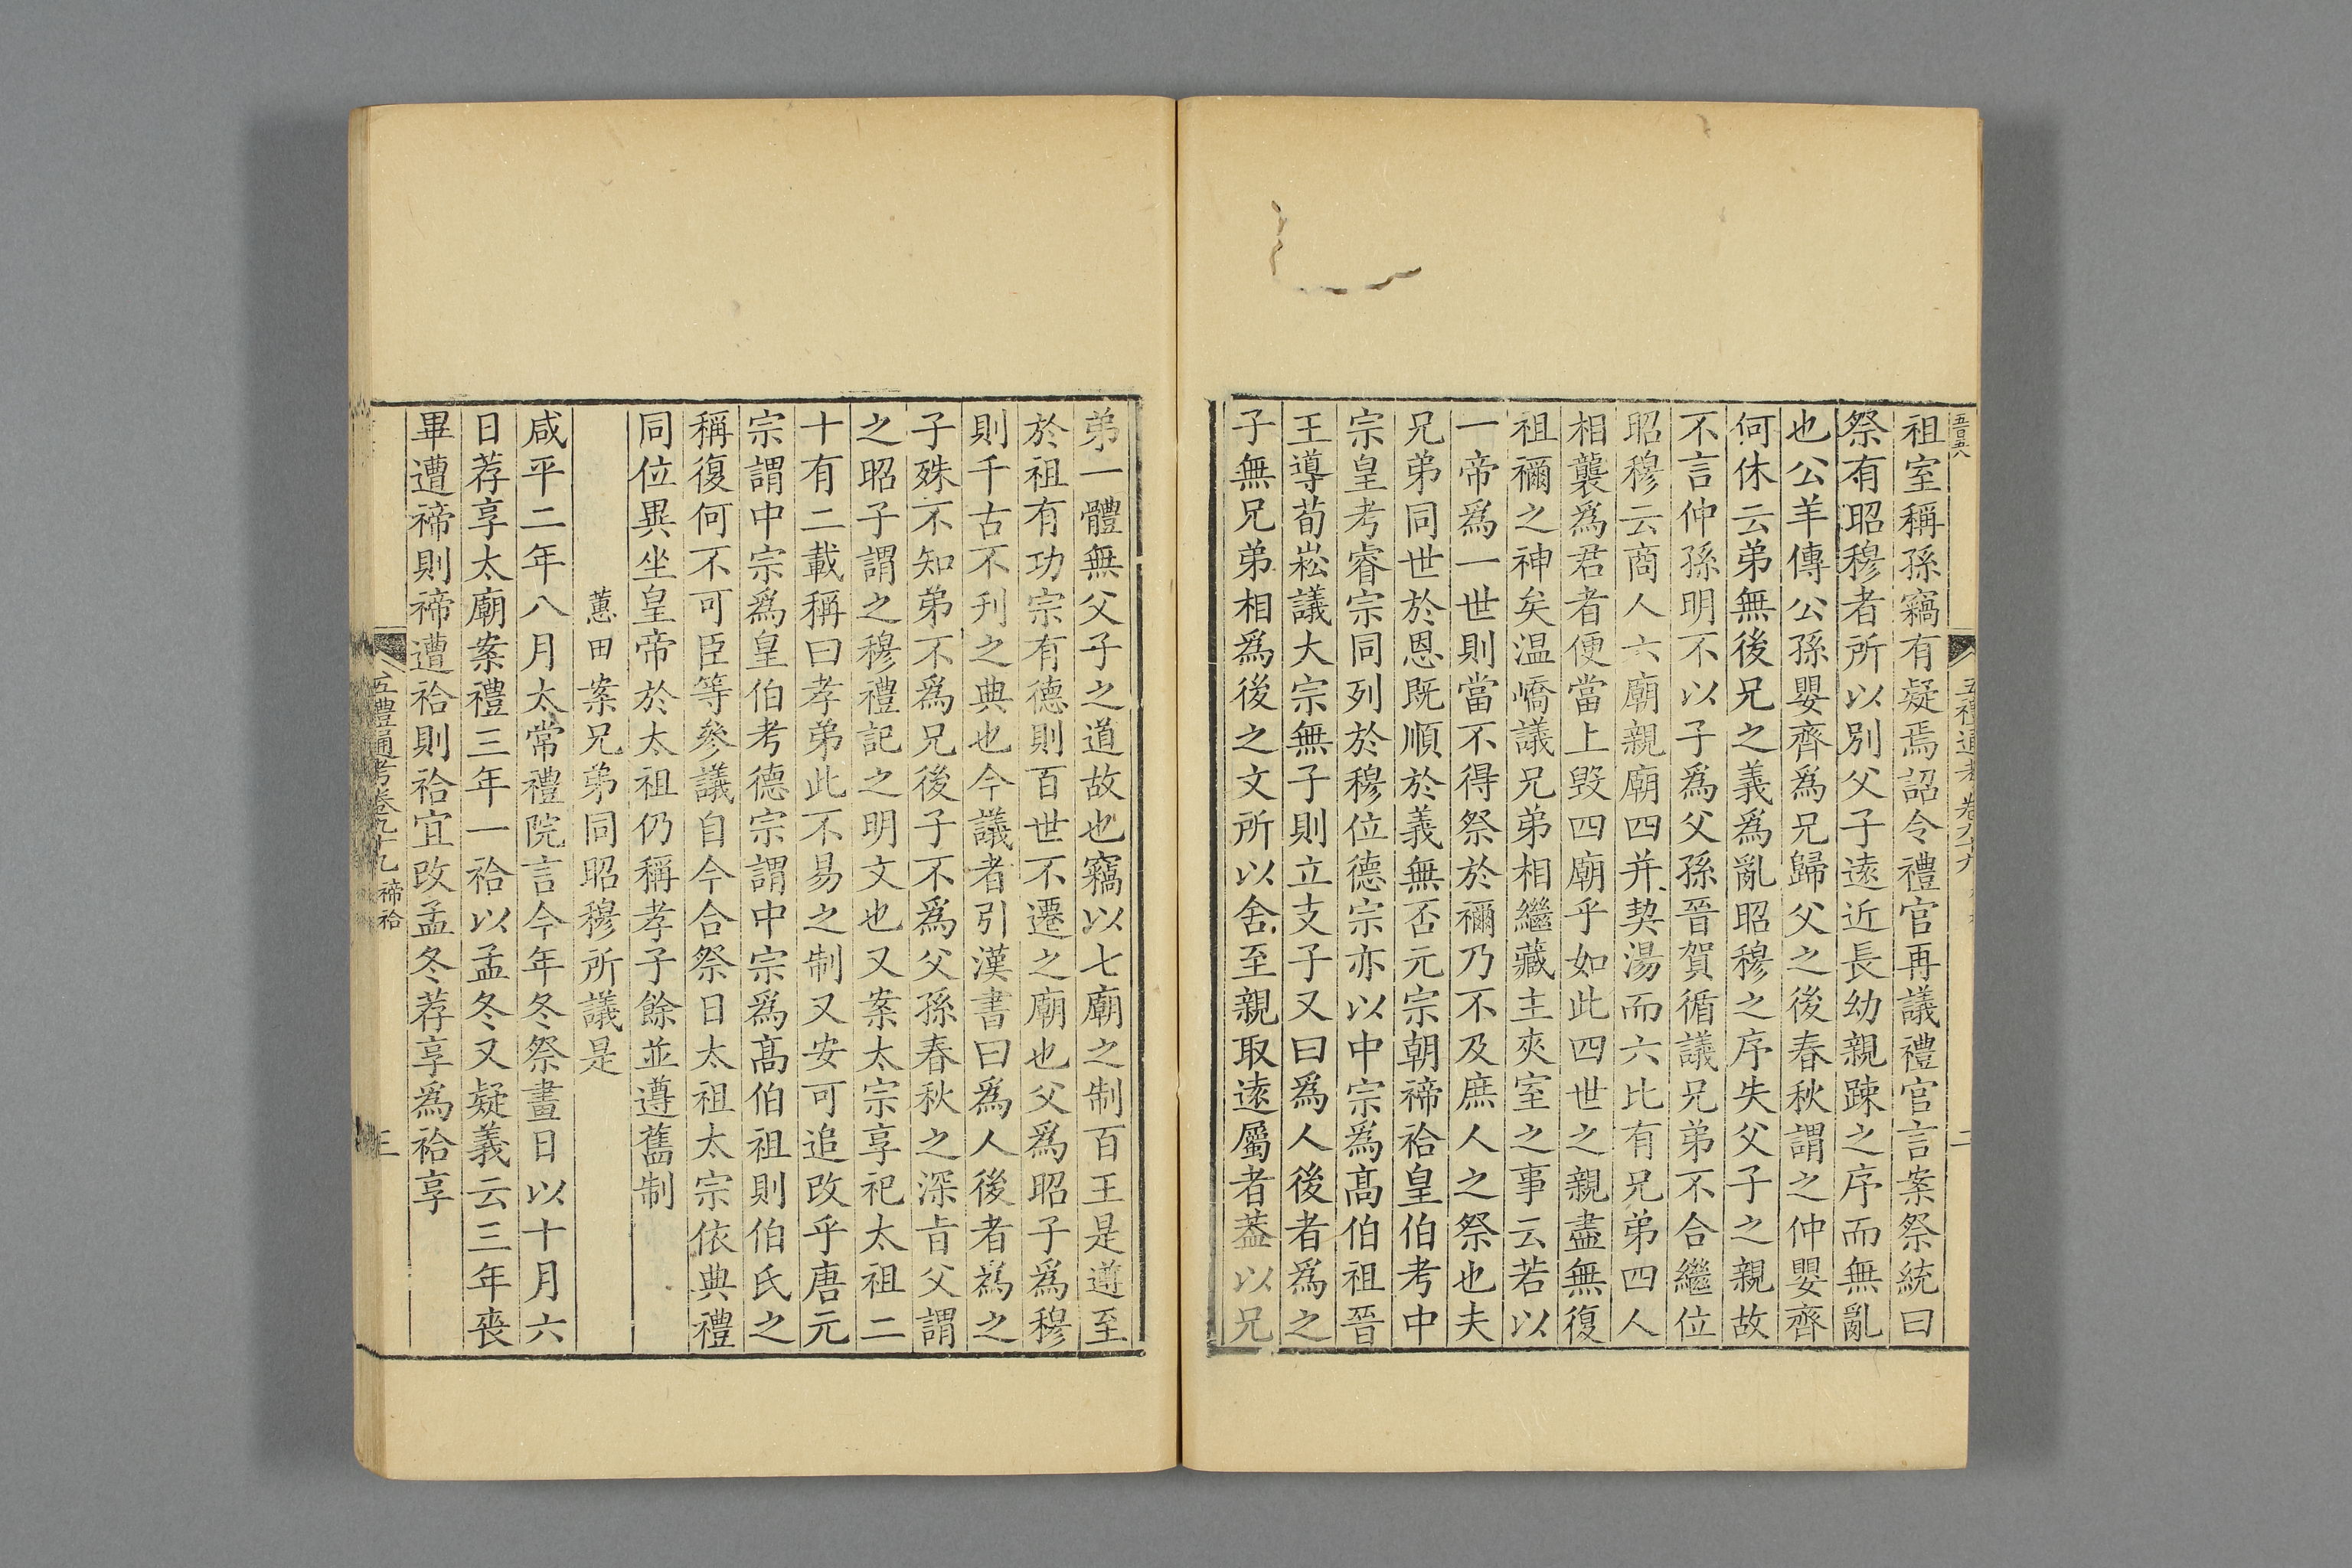 五百五八
五禮通考 卷九十九
二
祖室稱孫竊有疑焉詔令禮官再議禮官言案祭統曰
祭有昭穆者所以別父子遠近長幼親踈之序而無亂
也公羊傳公孫嬰齊爲兄歸父之後春秋謂之仲嬰齊
何休云弟無後兄之義爲亂昭穆之序失父子之親故
不言仲孫明不以子爲父孫晉賀循議兄弟不合繼位
昭穆云商人六廟親廟四并契湯而六比有兄弟四人
相襲爲君者便當上毀四廟乎如此四世之親盡無復
祖禰之神矣温嶠議兄弟相繼藏主夾室之事云若以
一帝爲一世則當不得祭於禰乃不及庶人之祭也夫
兄弟同世於恩既順於義無否元宗朝禘祫皇伯考中
宗皇考睿宗同列於穆位德宗亦以中宗爲髙伯祖晉
王導荀崧議大宗無子則立支子又曰爲人後者爲之
子無兄弟相爲後之文所以舍至親取遠屬者葢以兄
弟一體無父子之道故也竊以七廟之制百王是遵至
於祖有功宗有德則百世不遷之廟也父爲昭子爲穆
則千古不刊之典也今議者引漢書曰爲人後者爲之
子殊不知弟不爲兄後子不爲父孫春秋之深旨父謂
之昭子謂之穆禮記之明文也又案太宗享祀太祖二
十有二載稱曰孝弟此不易之制又安可追改乎唐元
宗謂中宗爲皇伯考德宗謂中宗爲髙伯祖則伯氏之
稱復何不可臣等參議自今合祭日太祖太宗依典禮
同位異坐皇帝於太祖仍稱孝子餘並遵舊制
蕙田案兄弟同昭穆所議是
咸平二年八月太常禮院言今年冬祭畫日以十月六
日荐享太廟案禮三年一祫以孟冬又疑義云三年喪
畢遭禘則禘遭祫則祫宜改孟冬荐享爲祫享
五禮通考卷九十九 禘祫
三